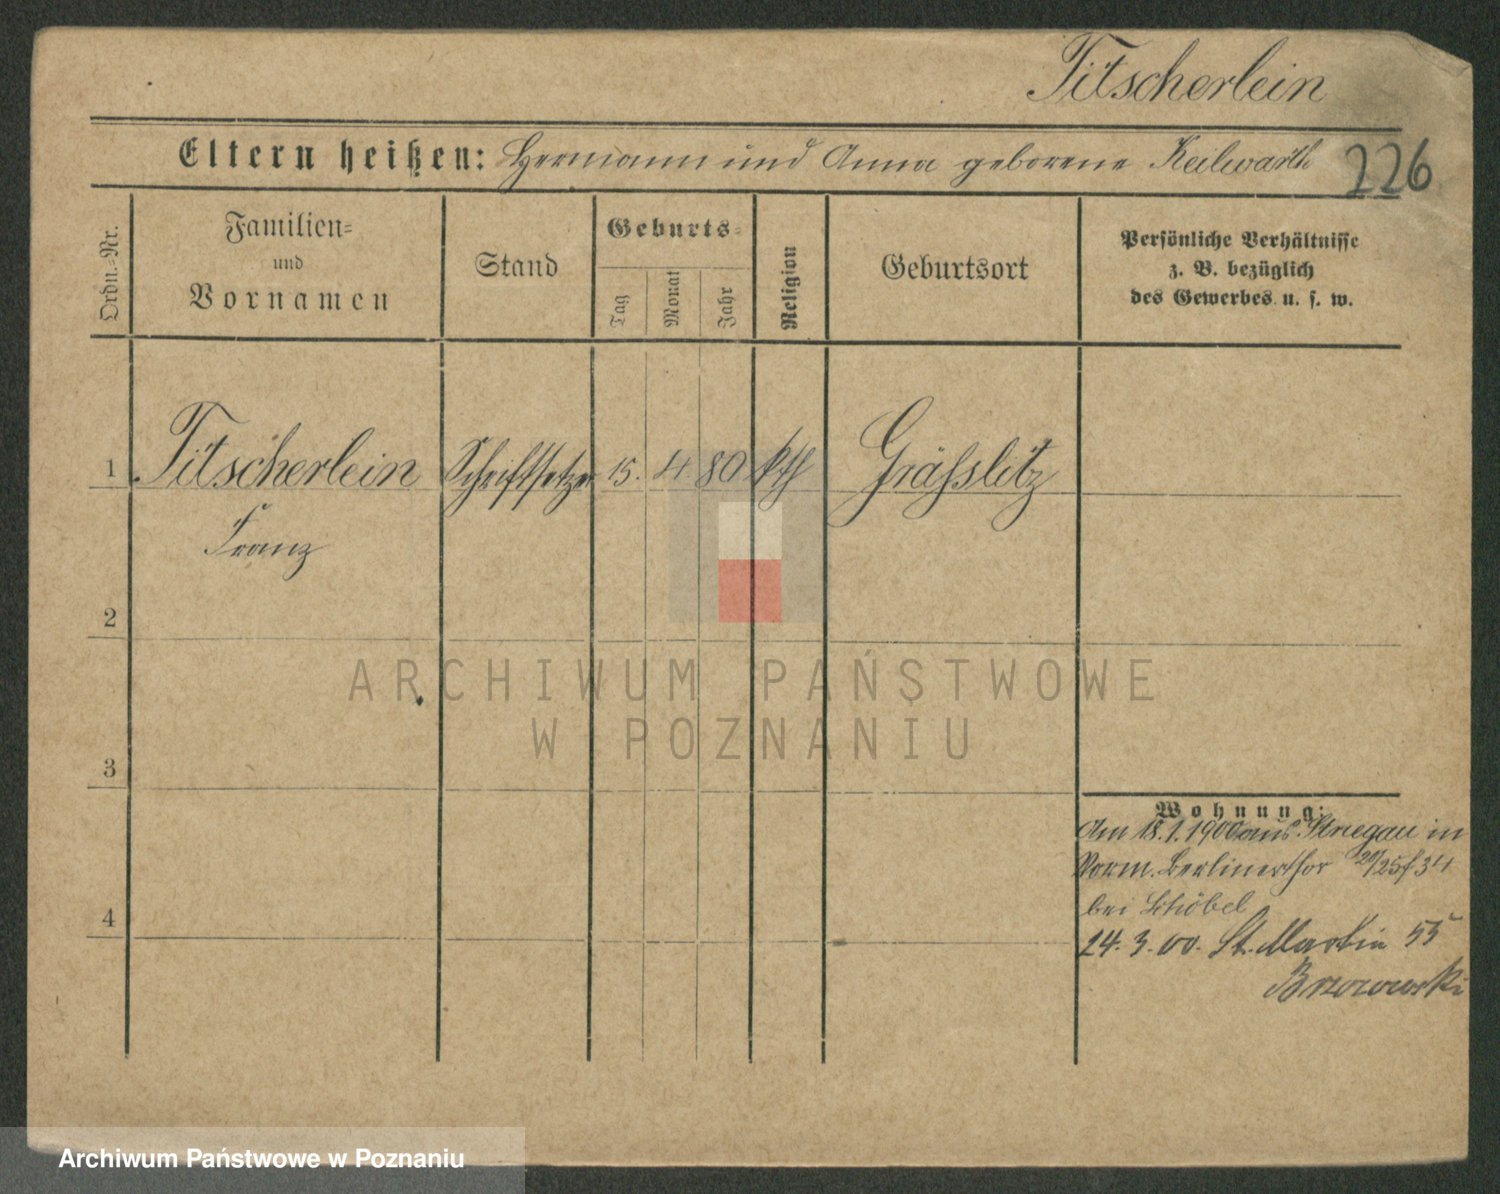 Titscherlein
Eltern heißen: Hermann und Anna geborene Keilwarth
226
Ordn.=Nr.
Familien=
und
Vornamen
Stand
Geburts=
Tag
Monat
Jahr
Religion
Geburtsort
Persönliche Verhältnisse
z. B. bezüglich
des Gewerbes u. s. w.
1 Titscherlein Schriftsetzer 15. 4. 80 kth Gräfslitz
Franz
2
3
4
Wohnung:
Am 18.1.1900 aus Striegau in
Vorm. Berlinerthor
bei
24. 3. 00. St. Martin 55
Brzozowski
ARCHIWUM PAŃSTWOWE
W POZNANIU
Archiwum Państwowe w Poznaniu